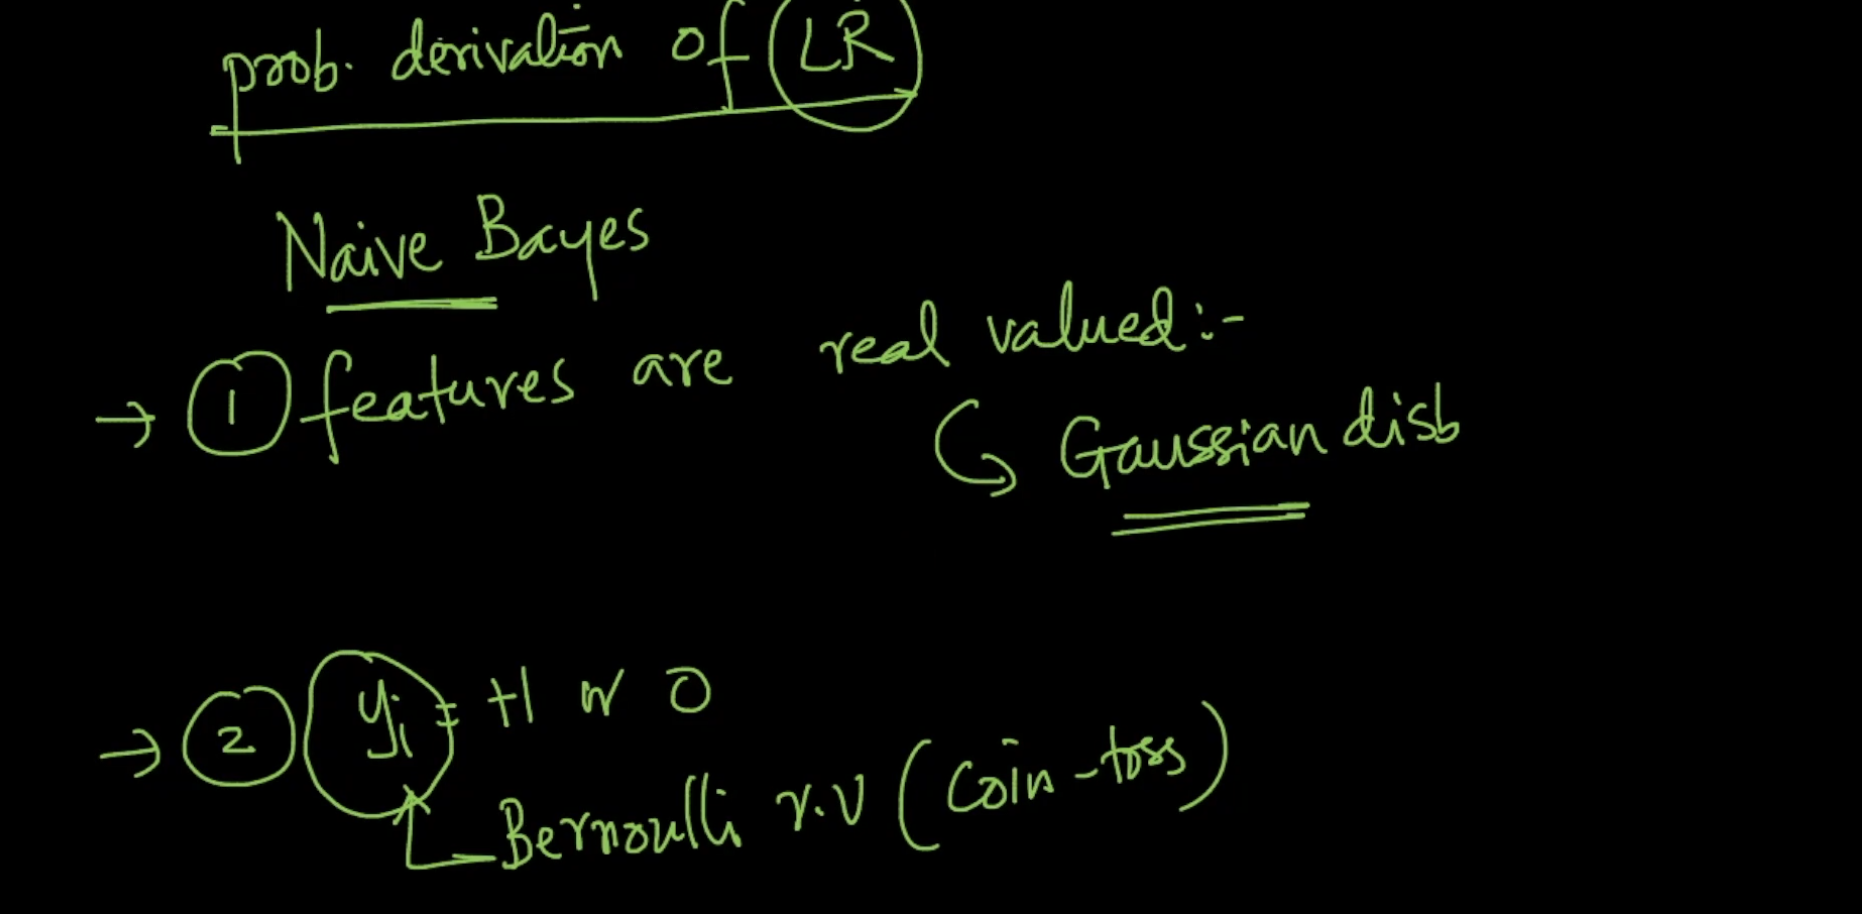 prob. derivation of LR
Naive Bayes
→ 1 features are real valued:-
Gaussian disb
→ 2 yi = +1 or 0
Bernoulli r.v (coin-toss)